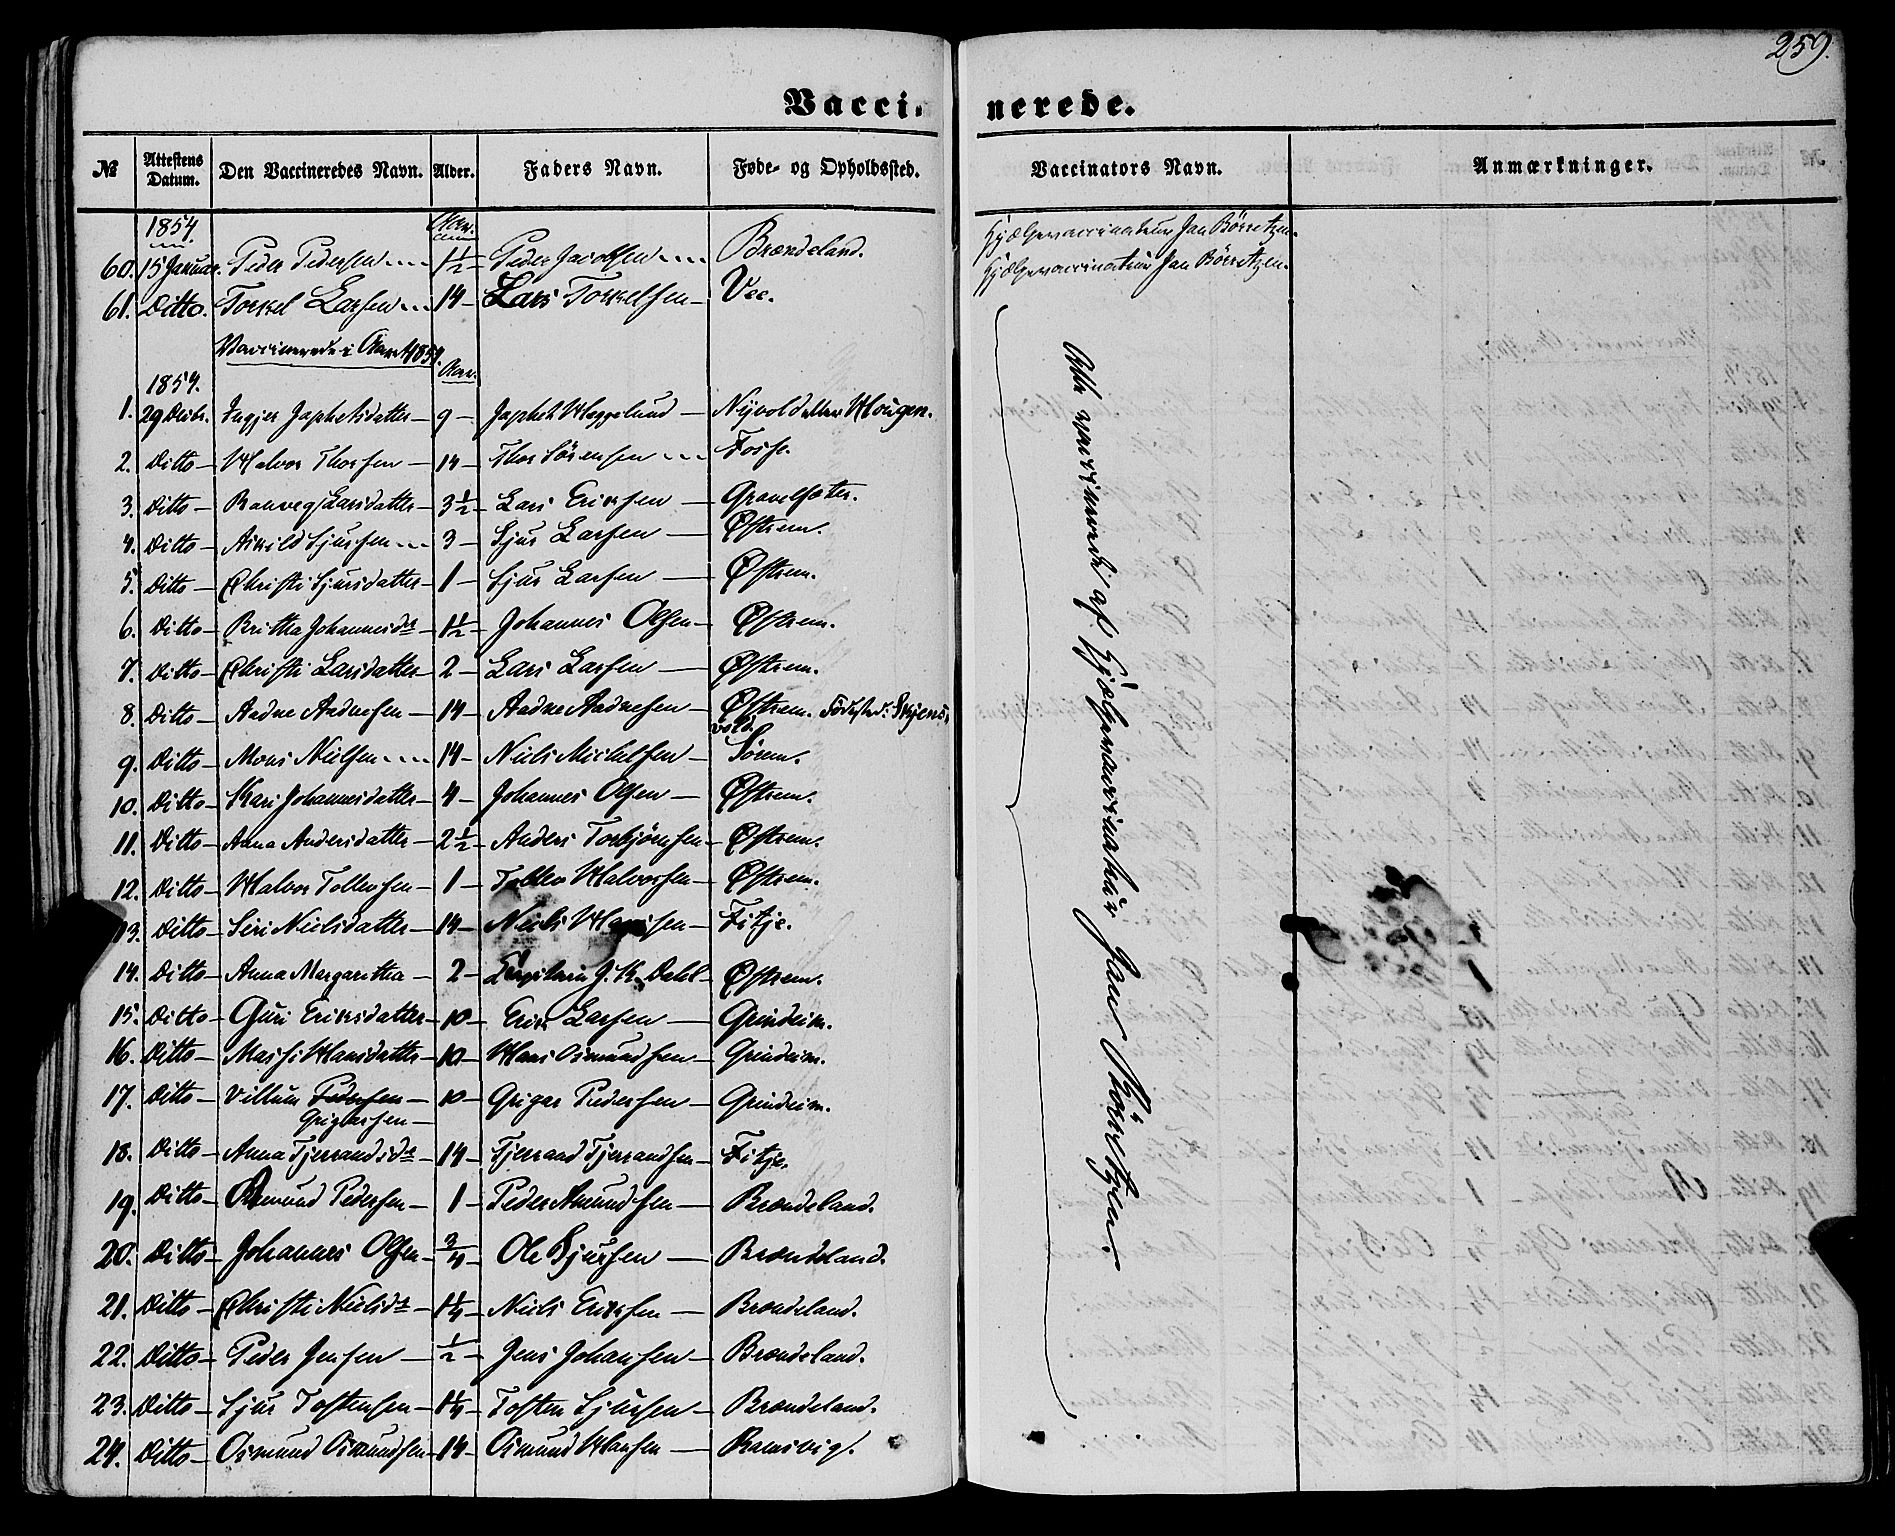 259.
Vaccinerede.
№ Attestens Datum. Den Vaccineredes Navn. Alder. Faders Navn. Føde- og Opholdssted. Vaccinators Navn. Anmærkninger.
1854. Aar.
60. 15 Januar. Peder Pedersen 1½ Peder Jacobsen Brændeland. Hjælpevaccinateur Jan Börretzen.
61. Ditto. Torkel Larsen 14 Lars Torkelsen Vee. Hjælpevaccinateur Jan Börretzen.
Vaccinerede i Aaret 1854.
1854. Aar.
1. 29 Decbr. Ingjer Japhetsdatter 9 Japhet Heggelund Nyvold eller Hougen.
2. Ditto Halvor Thorsen 14 Thor Sörensen Fosse.
3. Ditto Ranveg Larsdatter 3½ Lars Eriksen Gravelsæter.
4. Ditto Askild Sjursen 3 Sjur Larsen Østrem.
5. Ditto Christi Sjursdatter 1 Sjur Larsen Østrem.
6. Ditto Britha Johannesdr 1½ Johannes Olsen Østrem.
7. Ditto Christi Larsdatter 2 Lars Larsen Østrem.
8. Ditto Aadne Aadnesen 14 Aadne Aadnesen Østrem. Födested: Skjens-
vold.
9. Ditto Mons Nielsen 14 Niels Michelsen Sörem.
10. Ditto Kari Johannesdatter 4 Johannes Olsen Østrem.
11. Ditto Anna Andersdatter 2½ Anders Torbjörnsen Østrem.
12. Ditto Halvor Tollevsen 1 Tollev Halvorsen Østrem.
13. Ditto Siri Nielsdatter 14 Niels Hansen Fitje.
14. Ditto Anna Margaretha 2 J. K. Dahl Østrem.
15. Ditto Guri Eriksdatter 10 Erik Larsen Grindeim.
16. Ditto Massi Hansdatter 10 Hans Osmundsen Grindeim.
17. Ditto Villum Pedersen 10 Grigar Pedersen Grindeim.
Grigarsen
18. Ditto Anna Tjerrandsdr 14 Tjerrand Tjerrandsen Fitje.
19. Ditto Amund Pedersen 1 Peder Amundsen Brændeland.
20. Ditto Johannes Olsen ¾ Ole Sjursen Brændeland.
21. Ditto Christi Nielsdr 1¼ Niels Eriksen Brændeland.
22. Ditto Peder Jensen ½ Jens Johansen Brændeland.
23. Ditto Sjur Tostensen 1¼ Tosten Sjursen Brændeland.
24. Ditto Osmund Osmundsen 14 Osmund Hansen Ramsvig.
Alle vaccinerede af Hjælpevaccinateur Jan Börretzen.